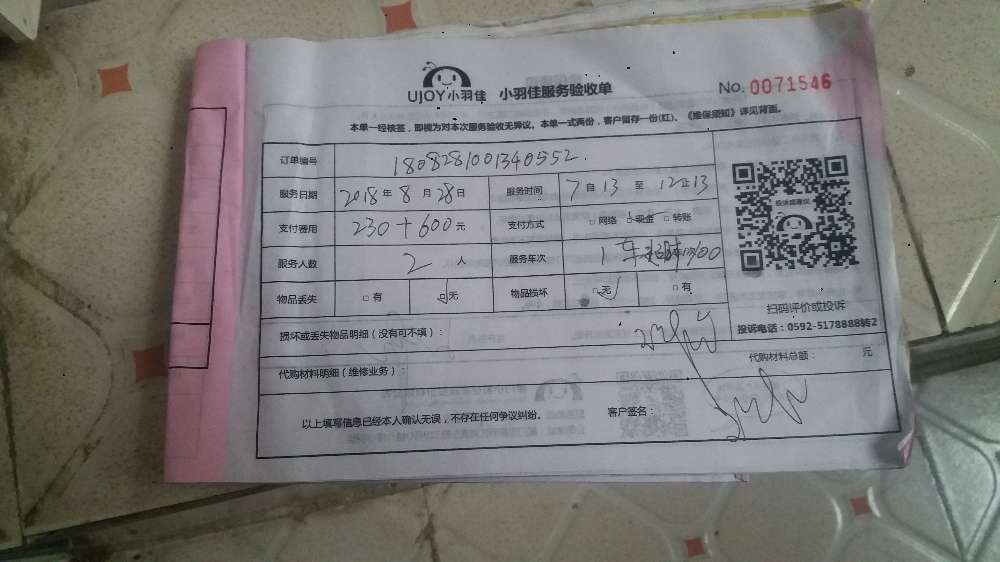 UJOY小羽佳 小羽佳服务验收单 No. 0071546
本单一经核签，即视为对本次服务验收无异议。本单一式两份，客户留存一份(红)、《维保须知》详见背面。
订单编号 1808281001340552.
服务日期 2018年8月28日 服务时间 7自13至12止13
支付费用 230+600元 支付方式 □网络 □现金 □转账
服务人数 2人 服务车次 1车
物品丢失 □有 □无 物品损坏 □无 □有
投诉或建议
扫码评价或投诉
投诉电话：0592-5178888转2
损坏或丢失物品明细（没有可不填）：
代购材料明细（维修业务）： 代购材料总额： 元
以上填写信息已经本人确认无误，不存在任何争议纠纷。 客户签名：